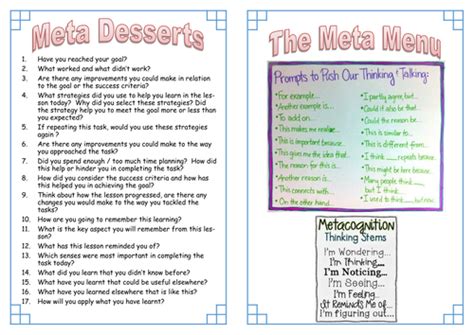 Meta Desserts
1. Have you reached your goal?
2. What worked and what didn't work?
3. Are there any improvements you could make in relation
to the goal or the success criteria?
4. What strategies did you use to help you learn in the les-
son today? Why did you select these strategies? Did
the strategy help you to meet the goal more or less than
you expected?
5. If repeating this task, would you use these strategies
again ?
6. Are there any improvements you could make to the way
you approached the task?
7. Did you spend enough / too much time planning? How did
this help or hinder you in completing the task?
8. How did you consider the success criteria and how has
this helped you in achieving the goal?
9. Think about how the lesson progressed, are there any
changes you would make as a result of your own think-
ing?
10. How are you going to remember this learning?
11. What is the key aspect you will remember from this les-
son?
12. What has this lesson reminded you of?
13. Which senses were most important in completing the
task today?
14. What did you learn that you didn't know before?
15. What have you learnt that could be useful elsewhere?
16. What have you learnt elsewhere that is like this?
17. How will you apply what you have learnt?
The Meta Menu
Prompts to Push Our Thinking & Talking:
•For example...
•Another example is...
•To add on...
•This makes me realize...
•This is important because...
•This gives me the idea that...
•The reason for this is...
•Another reason is...
•This connects with...
•On the other hand...
•I partly agree, but...
•Could it also be that...
•Could the reason be...
•This is similar to...
•This is different from...
•I think ___ repeats because...
•This might be here because...
•Many people think ___
but I think...
•I used to think ___ but...
Metacognition
Thinking Stems
I'm Wondering...
I'm Thinking....
I'm Noticing...
I'm Seeing...
I'm Feeling...
It Reminds Me of...
I'm figuring out....